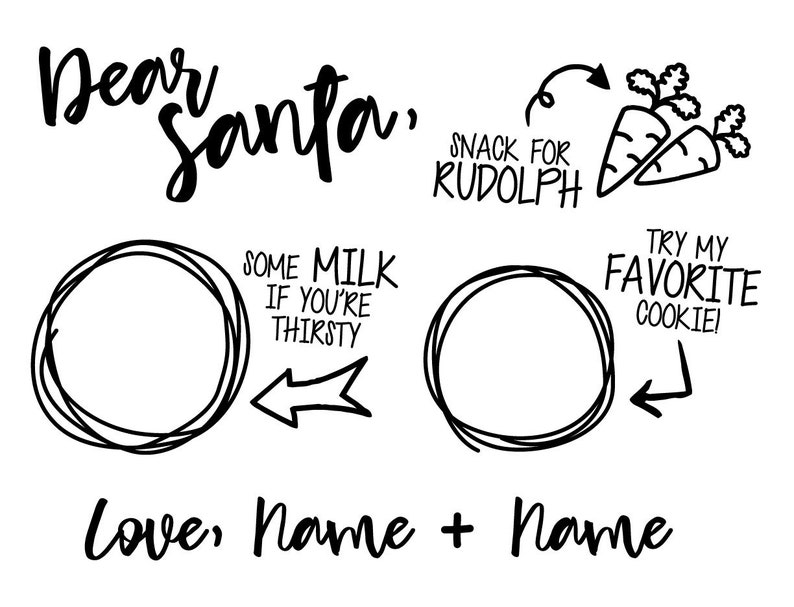 Dear
Santa,
SNACK FOR
RUDOLPH
SOME MILK
IF YOU'RE
THIRSTY
TRY MY
FAVORITE
COOKIE!
Love, Name + Name